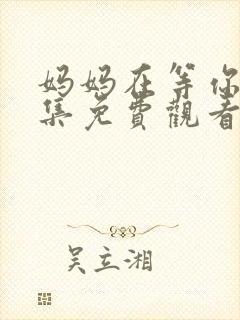 妈妈在等你
集免費觀看
吴立湘